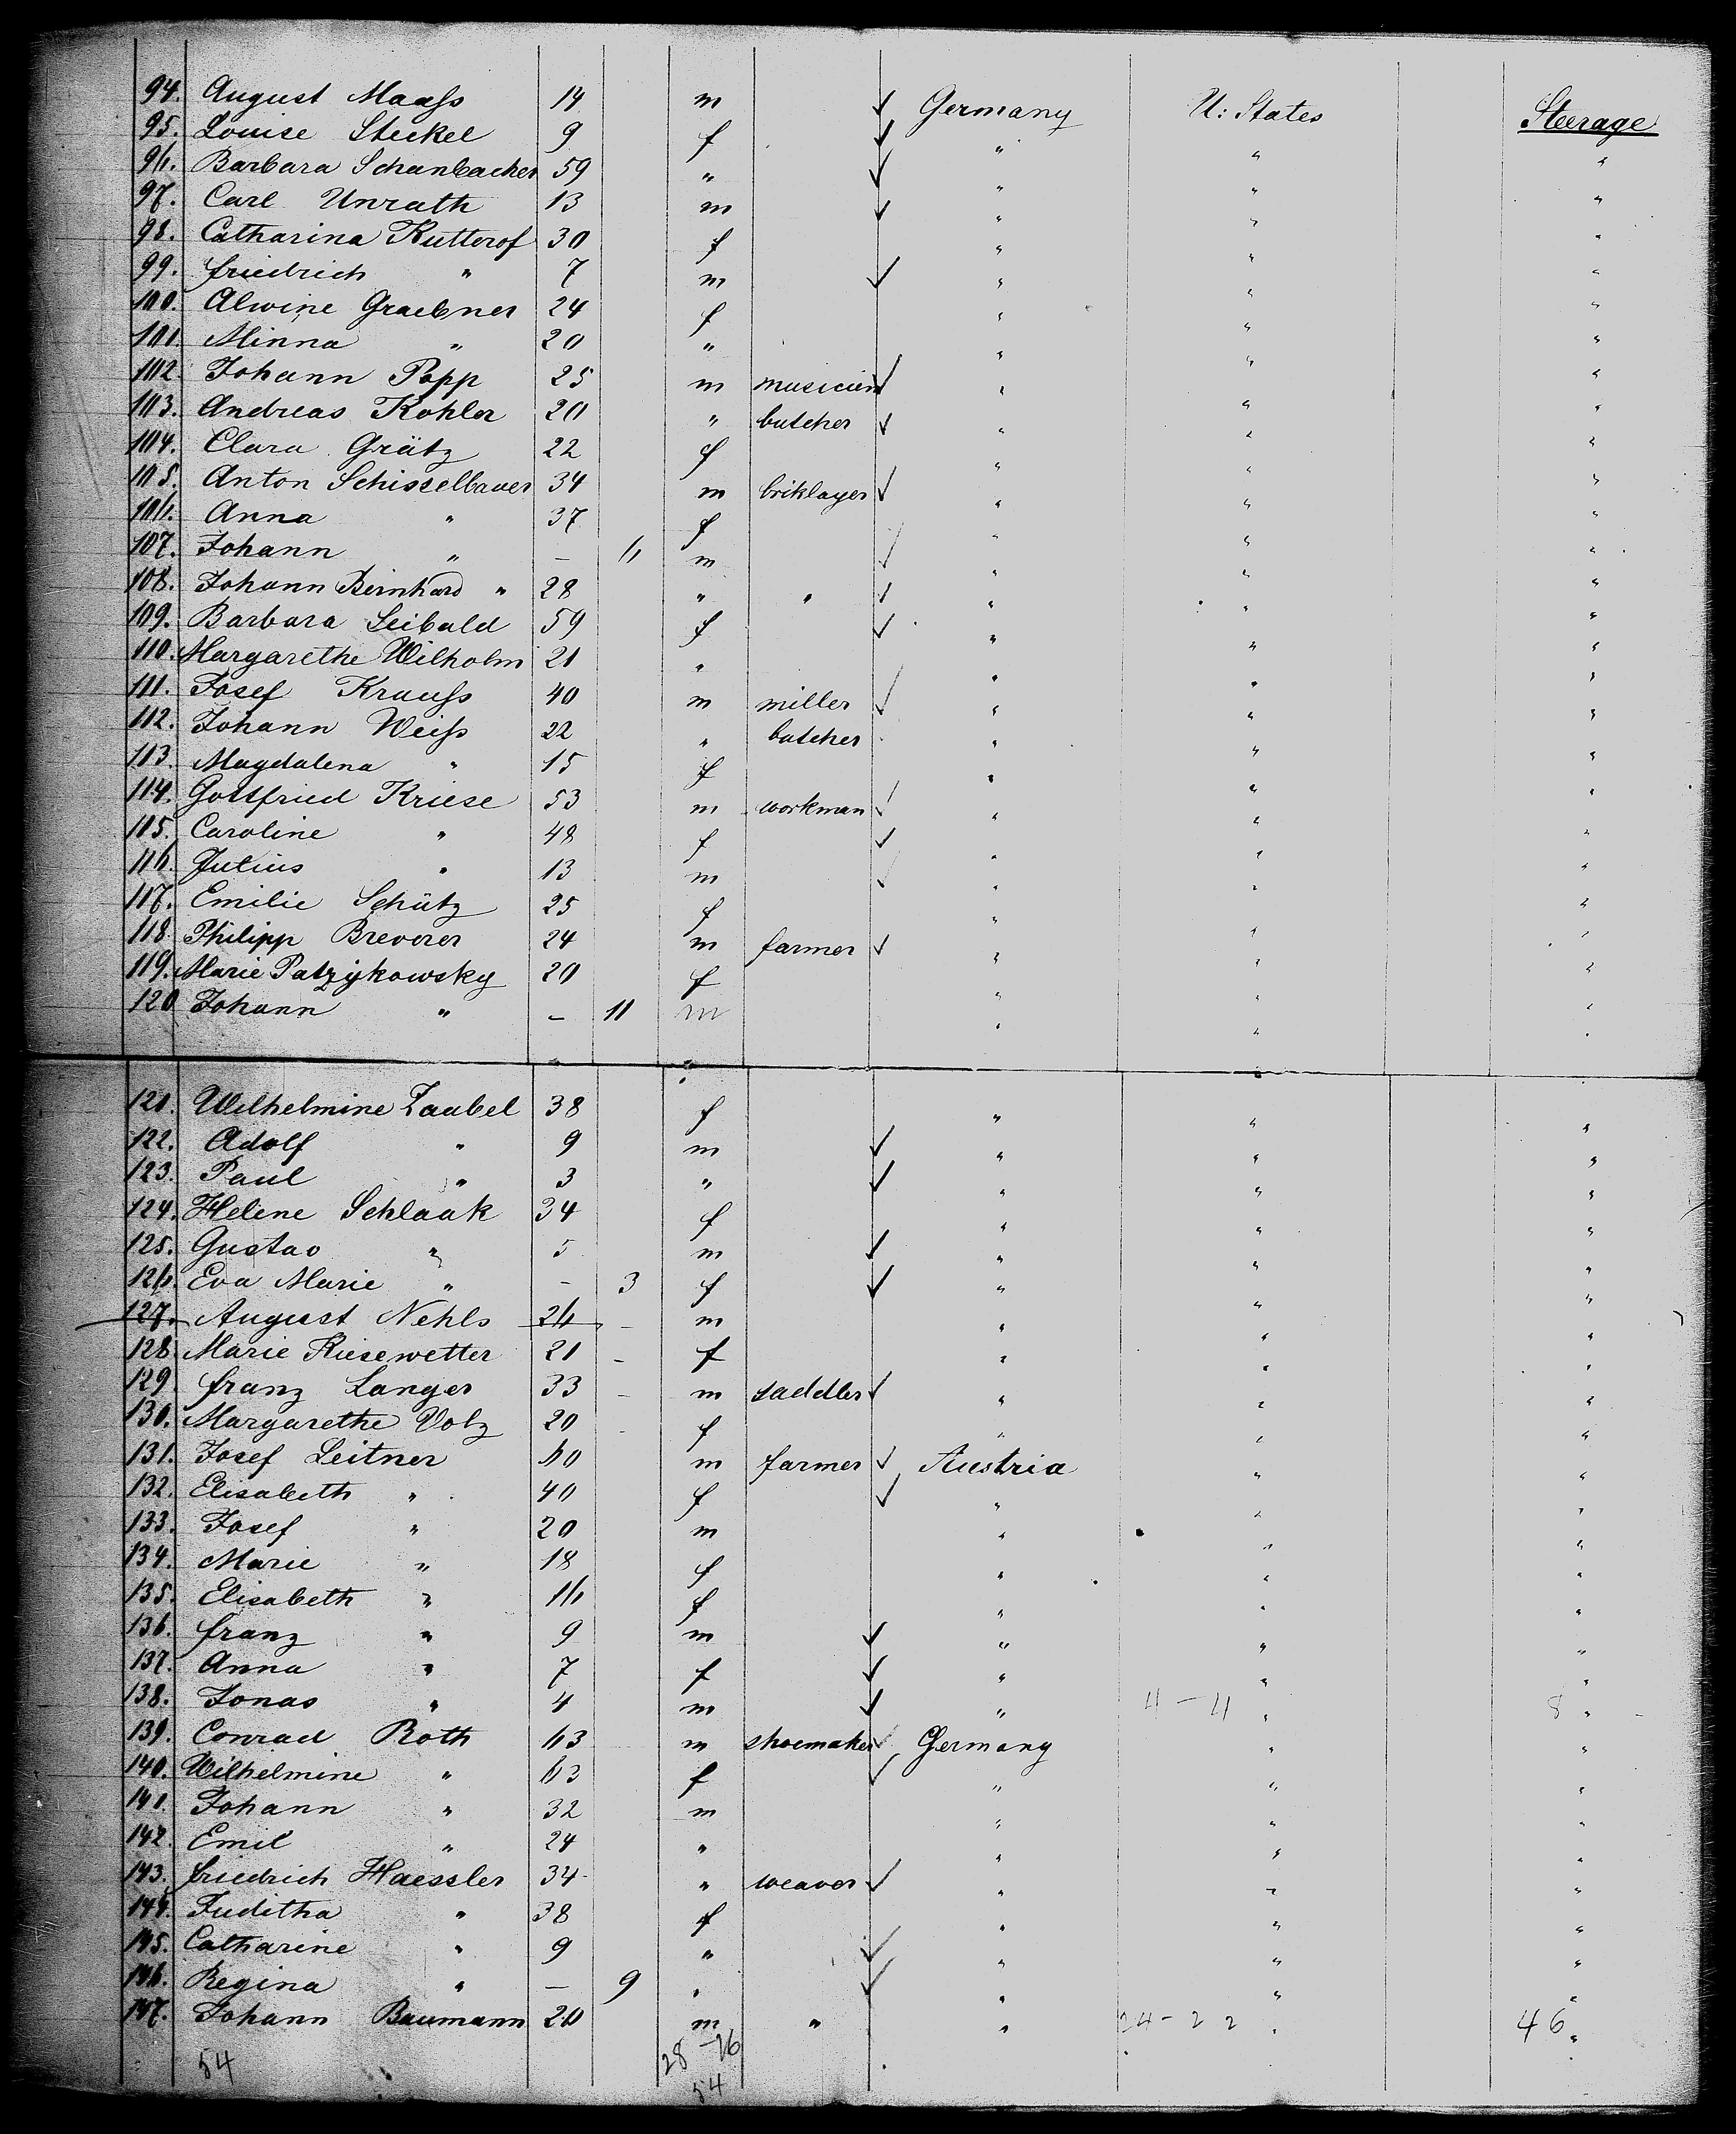 94. August Maaſs 14 m ✓ Germany U: States Steerage
95. Louise Steckel 9 f ✓ " " "
96. Barbara Schanbacher 59 " ✓ " " "
97. Carl Unrath 13 m ✓ " " "
98. Catharina Kutterof 30 f " " "
99. Friedrich " 7 m ✓ " " "
100. Alwine Graebner 24 f " " "
101. Minna " 20 " " " "
102. Johann Popp 25 m musician ✓ " " "
103. Andreas Kohler 20 " butcher ✓ " " "
104. Clara Grätz 22 f " " "
105. Anton Schisselbauer 34 m briklayer ✓ " " "
106. Anna " 37 f " " "
107. Johann " – 6 m ✓ " " "
108. Johann Bernhard " 28 " " ✓ " " "
109. Barbara Leibald 59 f ✓ " " "
110. Margarethe Wilholm 21 " " " "
111. Josef Krauſs 40 m miller ✓ " " "
112. Johann Weiſs 22 " butcher " " "
113. Magdalena " 15 f " " "
114. Gottfried Kriese 53 m workman ✓ " " "
115. Caroline " 48 f ✓ " " "
116. Julius " 13 m ✓ " " "
117. Emilie Schütz 25 f " " "
118. Philipp Breverer 24 m farmer ✓ " " "
119. Marie Patzykowsky 20 f " " "
120. Johann " – 11 m " " "
121. Wilhelmine Zaabel 38 f " " "
122. Adolf " 9 m ✓ " " "
123. Paul " 3 " ✓ " " "
124. Helene Schlaak 34 f " " "
125. Gustav " 5 m ✓ " " "
126. Eva Marie " – 3 f ✓ " " "
127. August Nehls 26 – m " " "
128. Marie Kiesewetter 21 – f " " "
129. Franz Langer 33 – m saddler ✓ " " "
130. Margarethe Volz 20 f " " "
131. Josef Leitner 60 m farmer ✓ Austria " "
132. Elisabeth " 40 f ✓ " " "
133. Josef " 20 m " " "
134. Marie " 18 f " " "
135. Elisabeth " 16 f " " "
136. Franz " 9 m ✓ " " "
137. Anna " 7 f ✓ " " "
138. Jonas " 4 m ✓ " 4 – 4 " 8 "
139. Conrad Roth 63 m shoemaker ✓ Germany " "
140. Wilhelmine " 63 f ✓ " " "
141. Johann " 32 m " " "
142. Emil " 24 " " " "
143. Friedrich Haessler 34 " weaver ✓ " " "
144. Juditha " 38 f " " "
145. Catharine " 9 " ✓ " " "
146. Regina " – 9 " ✓ " " "
147. Johann Baumann 20 m " " 24 – 22 " 46 "
54 28 – 26
54